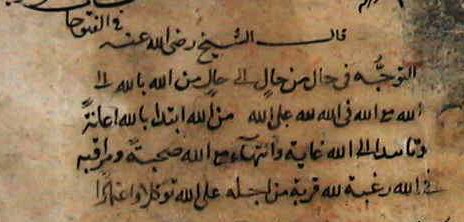 في الفتوحات
قال الشيخ رضى الله عنه
التوجه فى حال من حال الى حال من الله بالله الى
الله مع الله فى الله لله على الله من الله ابتداء بالله اعانة
الى الله غاية وانتهاء مع الله صحبة ومراقبة
فى الله رغبة لله قربة من اجله على الله توكلا واعتمادا